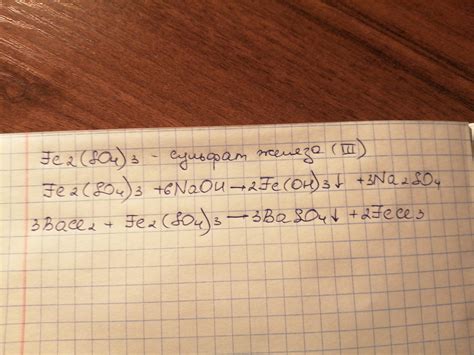 Fe2(SO4)3 - сульфат железа (III)
Fe2(SO4)3 + 6NaOH → 2Fe(OH)3↓ + 3Na2SO4
3BaCl2 + Fe2(SO4)3 → 3BaSO4↓ + 2FeCl3